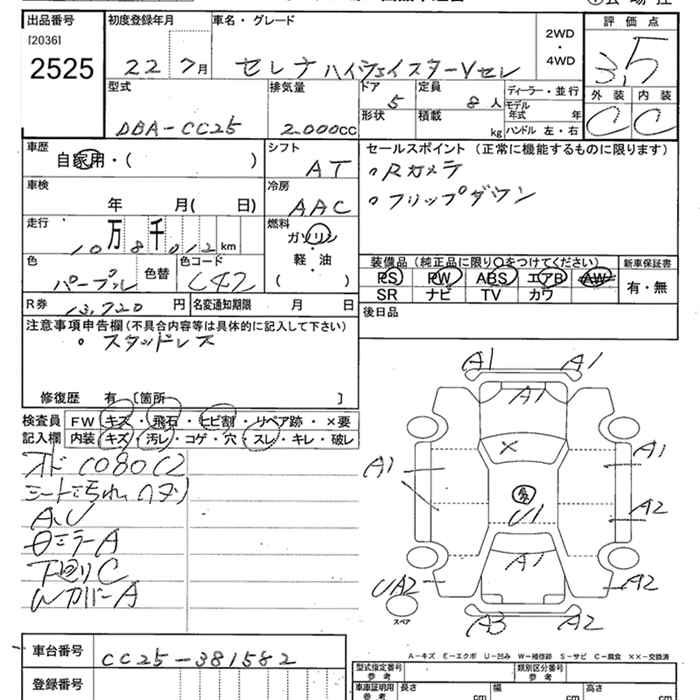 出品番号 初度登録年月 車名・グレード 評価点
[2036]
2525 22 7月 セレナ ハイウェイスターVセレ 2WD・4WD 3.5
型式 排気量 ドア 定員 ディーラー・並行 外装 内装
DBA-CC25 2.000cc 5 8人 モデル年式 年 C C
形状 積載 kg ハンドル 左・右
車歴 シフト セールスポイント (正常に機能するものに限ります)
自家用・( ) AT 。Rカメラ
車検 冷房 。フリップダウン
年 月( 日) AAC
走行 燃料
10万8千012km ガソリン
軽・油
( )
色 色替 色コード 装備品(純正品に限り○をつけてください) 新車保証書
パープル L42 PS PW ABS エアB AW 有・無
SR ナビ TV カワ
R券 13,720円 名変通知期限 月 日 後日品
注意事項申告欄(不具合内容等は具体的に記入して下さい)
。スタッドレス
修復歴 有 〔箇所 〕
検査員 FW キズ・飛石・ヒビ割・リペア跡・×要
記入欄 内装 キズ・汚レ・コゲ・穴・スレ・キレ・破レ
シート汚れ
A.U
ミラーA
下回りC
WカバーA
A1 A1
A1
×
A1 A1
A2
U1
A1
UA2 A2
スペア
A3 A2
A-キズ E-エクボ U-凹み W-補修跡 S-サビ C-腐食 ××-交換済
車台番号 CC25-381582
登録番号
型式指定番号 参考 類別区分番号 参考
車庫証明用 参考 長さ cm 幅 cm 高さ cm